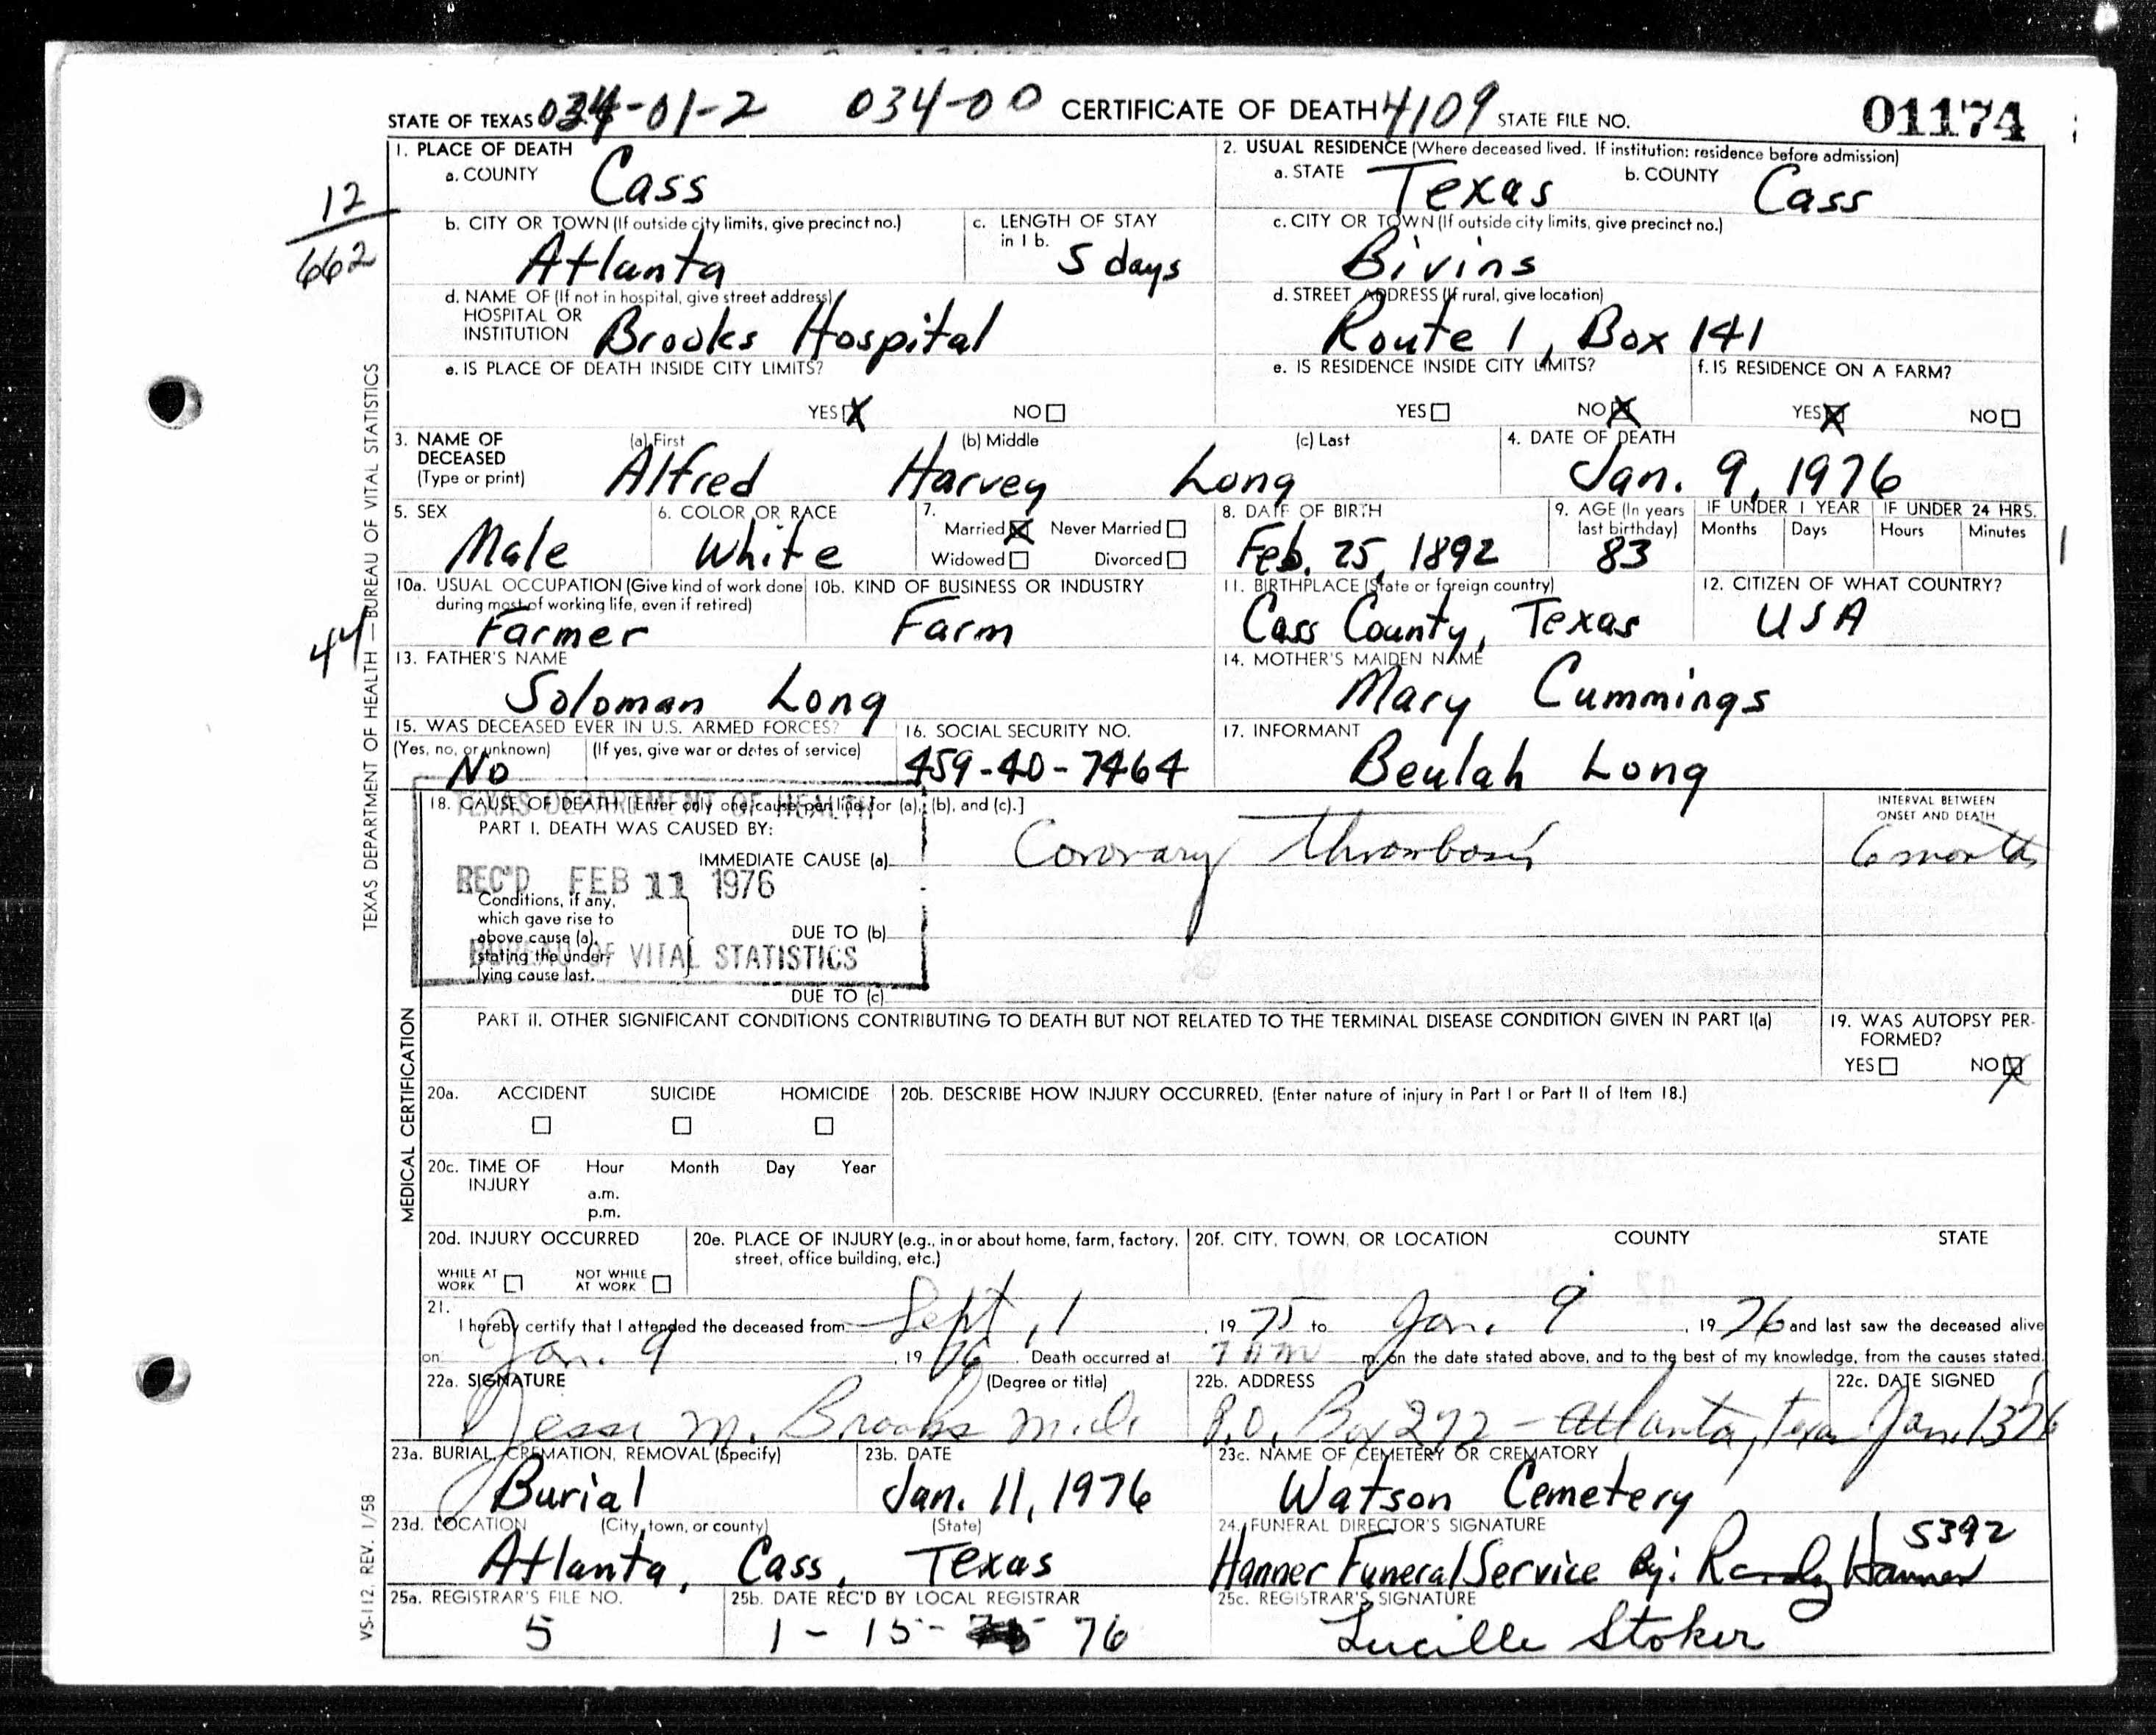 STATE OF TEXAS 034-01-2 034-00 CERTIFICATE OF DEATH 4109 STATE FILE NO. 01174
1. PLACE OF DEATH
a. COUNTY Cass
2. USUAL RESIDENCE (Where deceased lived. If institution: residence before admission)
a. STATE Texas b. COUNTY Cass
12
662
b. CITY OR TOWN (If outside city limits, give precinct no.)
Atlanta
c. LENGTH OF STAY
in 1 b.
5 days
c. CITY OR TOWN (If outside city limits, give precinct no.)
Bivins
d. NAME OF (If not in hospital, give street address)
HOSPITAL OR
INSTITUTION Brooks Hospital
d. STREET ADDRESS (If rural, give location)
Route 1, Box 141
e. IS PLACE OF DEATH INSIDE CITY LIMITS?
YES X NO
e. IS RESIDENCE INSIDE CITY LIMITS?
YES NO X
f. IS RESIDENCE ON A FARM?
YES X NO
3. NAME OF
DECEASED
(Type or print)
(a) First (b) Middle (c) Last
Alfred Harvey Long
4. DATE OF DEATH
Jan. 9, 1976
5. SEX
Male
6. COLOR OR RACE
White
7.
Married X Never Married
Widowed Divorced
8. DATE OF BIRTH
Feb. 25, 1892
9. AGE (In years
last birthday)
83
IF UNDER 1 YEAR IF UNDER 24 HRS.
Months Days Hours Minutes
10a. USUAL OCCUPATION (Give kind of work done
during most of working life, even if retired)
Farmer
10b. KIND OF BUSINESS OR INDUSTRY
Farm
11. BIRTHPLACE (State or foreign country)
Cass County, Texas
12. CITIZEN OF WHAT COUNTRY?
USA
44
13. FATHER'S NAME
Soloman Long
14. MOTHER'S MAIDEN NAME
Mary Cummings
15. WAS DECEASED EVER IN U.S. ARMED FORCES?
(Yes, no, or unknown) (If yes, give war or dates of service)
No
16. SOCIAL SECURITY NO.
459-40-7464
17. INFORMANT
Beulah Long
TEXAS DEPARTMENT OF HEALTH — BUREAU OF VITAL STATISTICS
18. CAUSE OF DEATH [Enter only one cause per line for (a), (b), and (c).]
TEXAS DEPARTMENT OF HEALTH
PART I. DEATH WAS CAUSED BY:
IMMEDIATE CAUSE (a) Coronary Thrombosis
INTERVAL BETWEEN
ONSET AND DEATH
6 months
REC'D FEB 11 1976
Conditions, if any,
which gave rise to
above cause (a),
stating the under-
lying cause last.
BUREAU OF VITAL STATISTICS
DUE TO (b)
DUE TO (c)
MEDICAL CERTIFICATION
PART II. OTHER SIGNIFICANT CONDITIONS CONTRIBUTING TO DEATH BUT NOT RELATED TO THE TERMINAL DISEASE CONDITION GIVEN IN PART I(a)
19. WAS AUTOPSY PER-
FORMED?
YES NO X
20a. ACCIDENT SUICIDE HOMICIDE
20b. DESCRIBE HOW INJURY OCCURRED. (Enter nature of injury in Part I or Part II of Item 18.)
20c. TIME OF
INJURY
Hour Month Day Year
a.m.
p.m.
20d. INJURY OCCURRED
WHILE AT
WORK
NOT WHILE
AT WORK
20e. PLACE OF INJURY (e.g., in or about home, farm, factory,
street, office building, etc.)
20f. CITY, TOWN, OR LOCATION COUNTY STATE
21.
I hereby certify that I attended the deceased from Sept. 1, 1975 to Jan. 9, 1976 and last saw the deceased alive
on Jan. 9, 1976. Death occurred at m. on the date stated above, and to the best of my knowledge, from the causes stated.
22a. SIGNATURE (Degree or title)
Jesse M. Brooks M.D.
22b. ADDRESS
P.O. Box 272 - Atlanta, Texas
22c. DATE SIGNED
Jan. 13 76
23a. BURIAL, CREMATION, REMOVAL (Specify)
Burial
23b. DATE
Jan. 11, 1976
23c. NAME OF CEMETERY OR CREMATORY
Watson Cemetery
23d. LOCATION (City, town, or county) (State)
Atlanta, Cass, Texas
24. FUNERAL DIRECTOR'S SIGNATURE 5392
Hanner Funeral Service By: Randy Hanner
25a. REGISTRAR'S FILE NO.
5
25b. DATE REC'D BY LOCAL REGISTRAR
1-15- 76
25c. REGISTRAR'S SIGNATURE
Lucille Stoker
VS-112. REV. 1/58